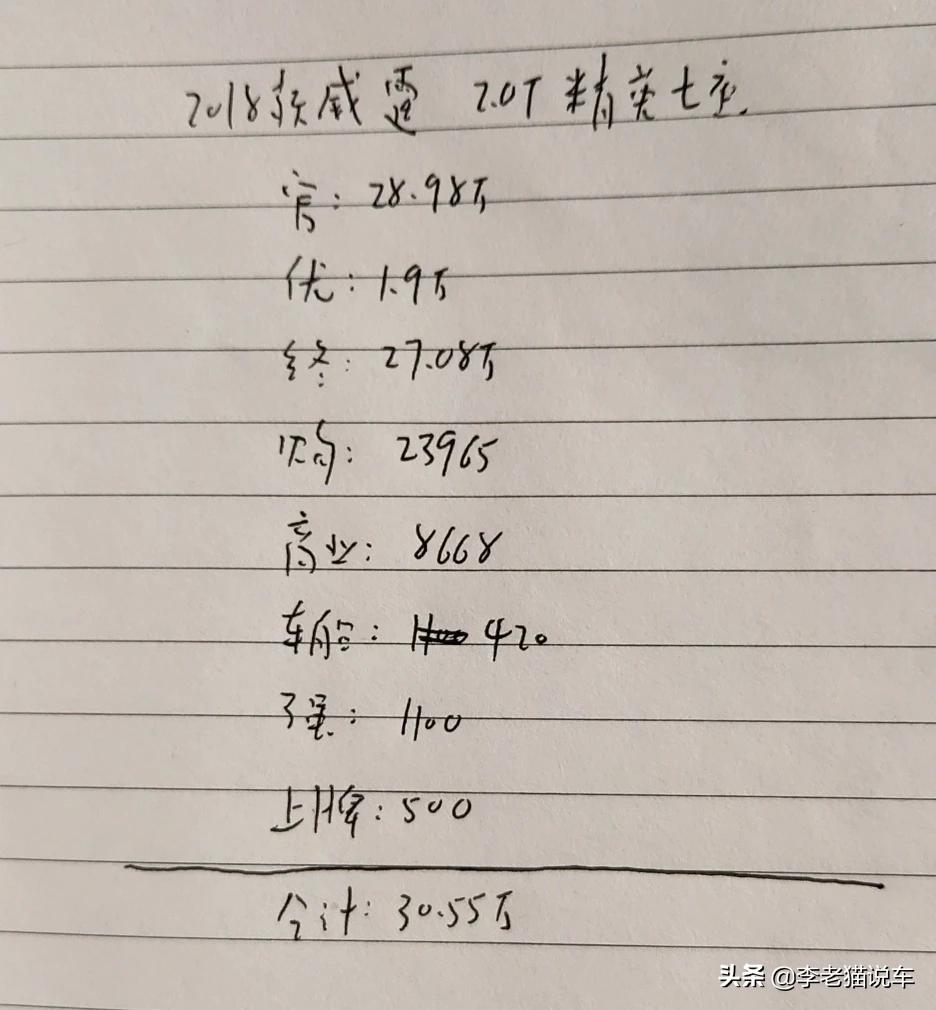 2018款威霆 2.0T 精英七座.
官: 28.98万
优: 1.9万
终: 27.08万
购: 23965
商业: 8668
车船: 420
强: 1100
上牌: 500
合计: 30.55万
头条 @李老猫说车